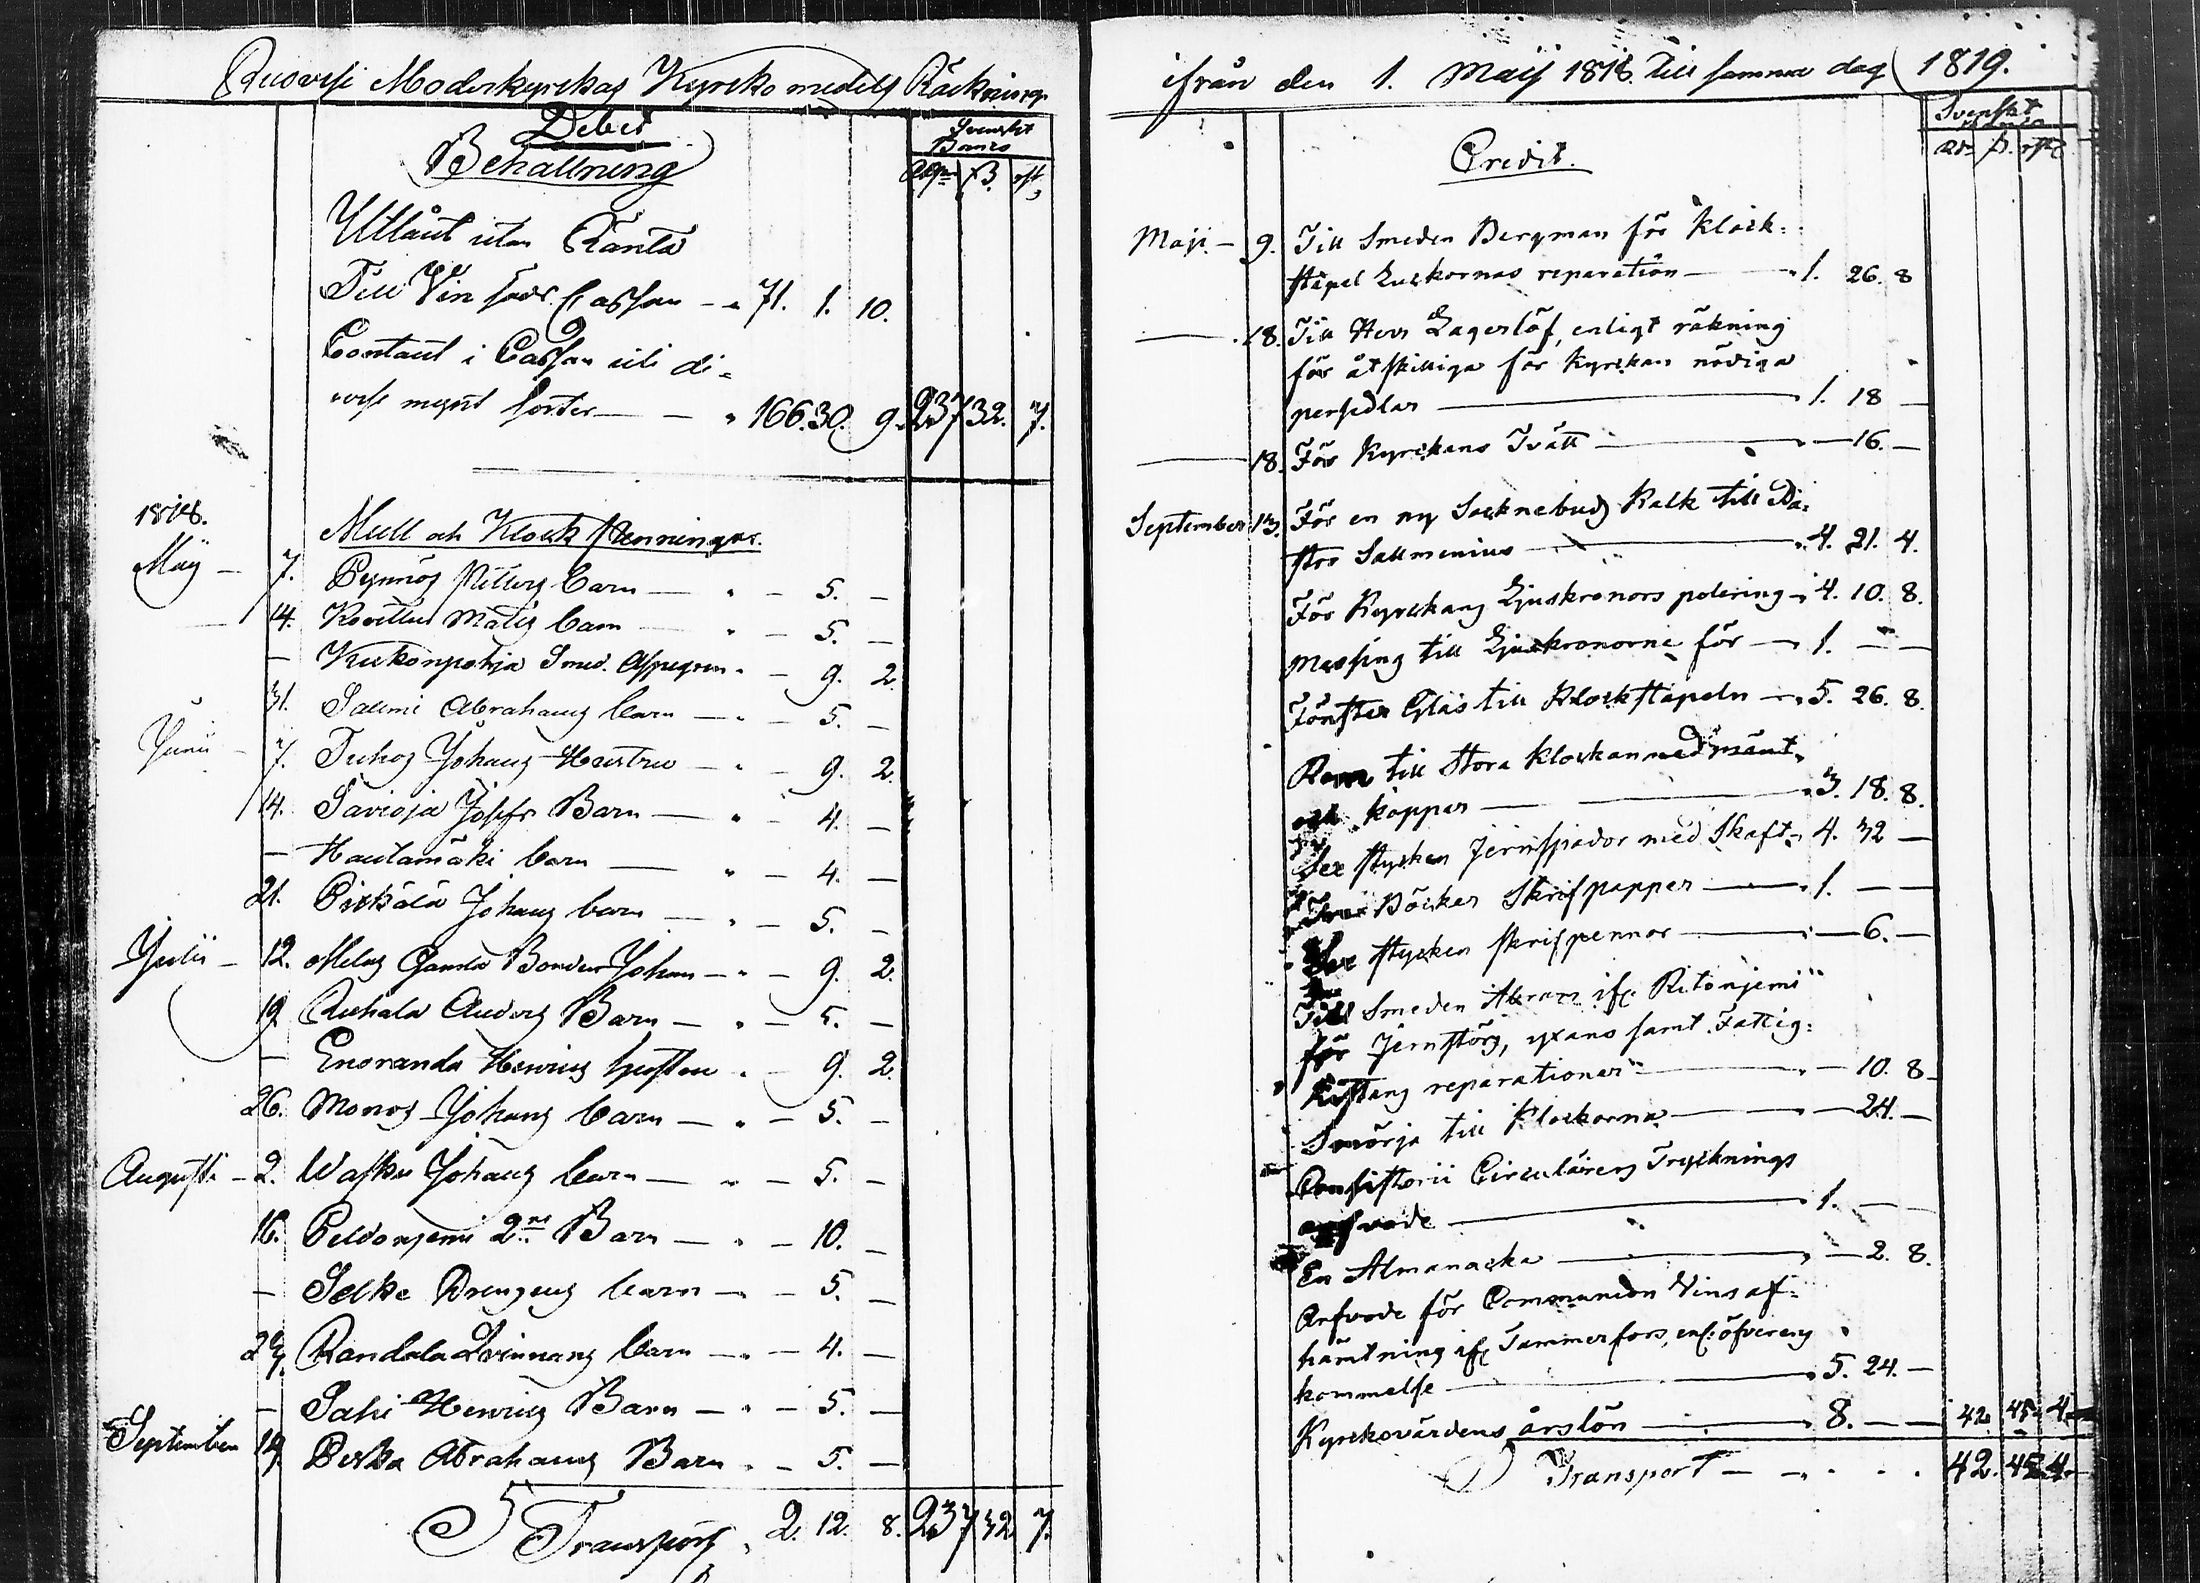 Ruovesi Moderkyrckas Kyrcko medels Räckning
Debet
Behallning
Svenskt Banco
Rdr ß. rst.
Utlånt utan Ränta
Till Vin säds Cassan - " 71. 1. 10.
Contant i Cassan uti di=
verse mynt sorter — — " 166. 30. 9. 237 32. 7.
1818. Mull och Klock Penningar.
Maij — 7. Barn — " — 5. —
14. Matts barn — " — 5. —
— Kuckonpohja Smed. Aspegren " — 9. 2.
31. Salmi Abrahams barn — " — 5. —
Junii — 7. Tuhos Johans Hustru — " — 9. 2.
14. Savioja Josefs Barn — " — 4. —
— Hautamäki barn — " — 4. —
21. Pirkälä Johans barn — " — 5. —
Julii — 12. Gamla Bonden Johan — " — 9. 2.
19. Ruhala Anders Barn — " — 5. —
— Enoranda Henrics hustru " — 9. 2.
26. Monos Johans barn — " — 5. —
Augusti — 2. Johans barn — " — 5. —
16. Peldonjemi 2ne Barn — " — 10. —
— Selke Drengens barn — " — 5. —
Randala Qvinnans barn — " — 4. —
— Sahi Henrics Barn — " — 5. —
September 19. Perka Abrahams Barn " — 5. —
Transport " 2. 12. 8. 237 32 7.
ifrån den 1. Maij 1818 till samma dag 1819.
Svenskt Banco
Rdr ß. rst.
Credit.
Maji — 9. Till Smeden Bergman för Klock=
stapel Luckornas reparation — " 1. 26. 8
— 18. Till Herr Lagerlöf, enligt räkning
för åtskilliga för Kyrckan nödiga
persedlar — 1. 18 —
— 18. För Kyrckans Tvätt — " — 16. —
September 13. För en ny Socknebuds Kalk till Pa=
stor Sallmenius — " 4. 21. 4.
För Kyrckans Ljuskronors polering " 4. 10. 8.
Messing till Ljuskronorne för — " 1. — —
Fönster Glas till Klockstapeln — " 5. 26. 8.
till Stora Klockan med
och koppar — " 3. 18. 8.
Sex stycken Jernspador med Skaft " 4. 32 —
Böcker Skrifpapper — " 1. — —
Sex stycken skrifpennor — " — 6. —
Till Smeden Abram ifr. Ritonjemi
för Jernstörs, yxans samt Fattig=
Kistans reparationer — " — 10. 8
Smörja till Klockorna — " — 24. —
Consistorii Circulairers Trycknings
arfvode — 1. — —
En Almanacka — " — 2. 8.
Arfvode för Communion Vins af=
hämtning ifr Tammerfors, enl: öfverens
kommelse — " 5. 24. —
Kyrckovärdens årslön — 8. — — 42. 45. 4.
Transport — " 42. 45. 4.